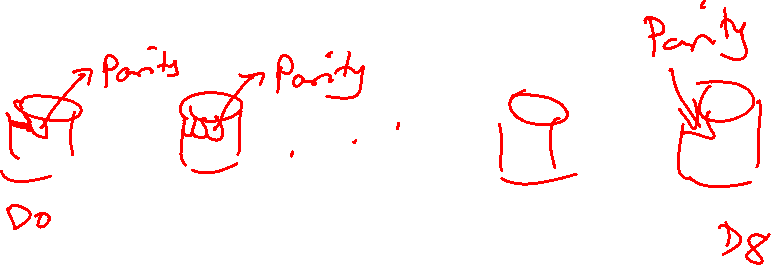 Parity
Parity
Parity
D0
D8